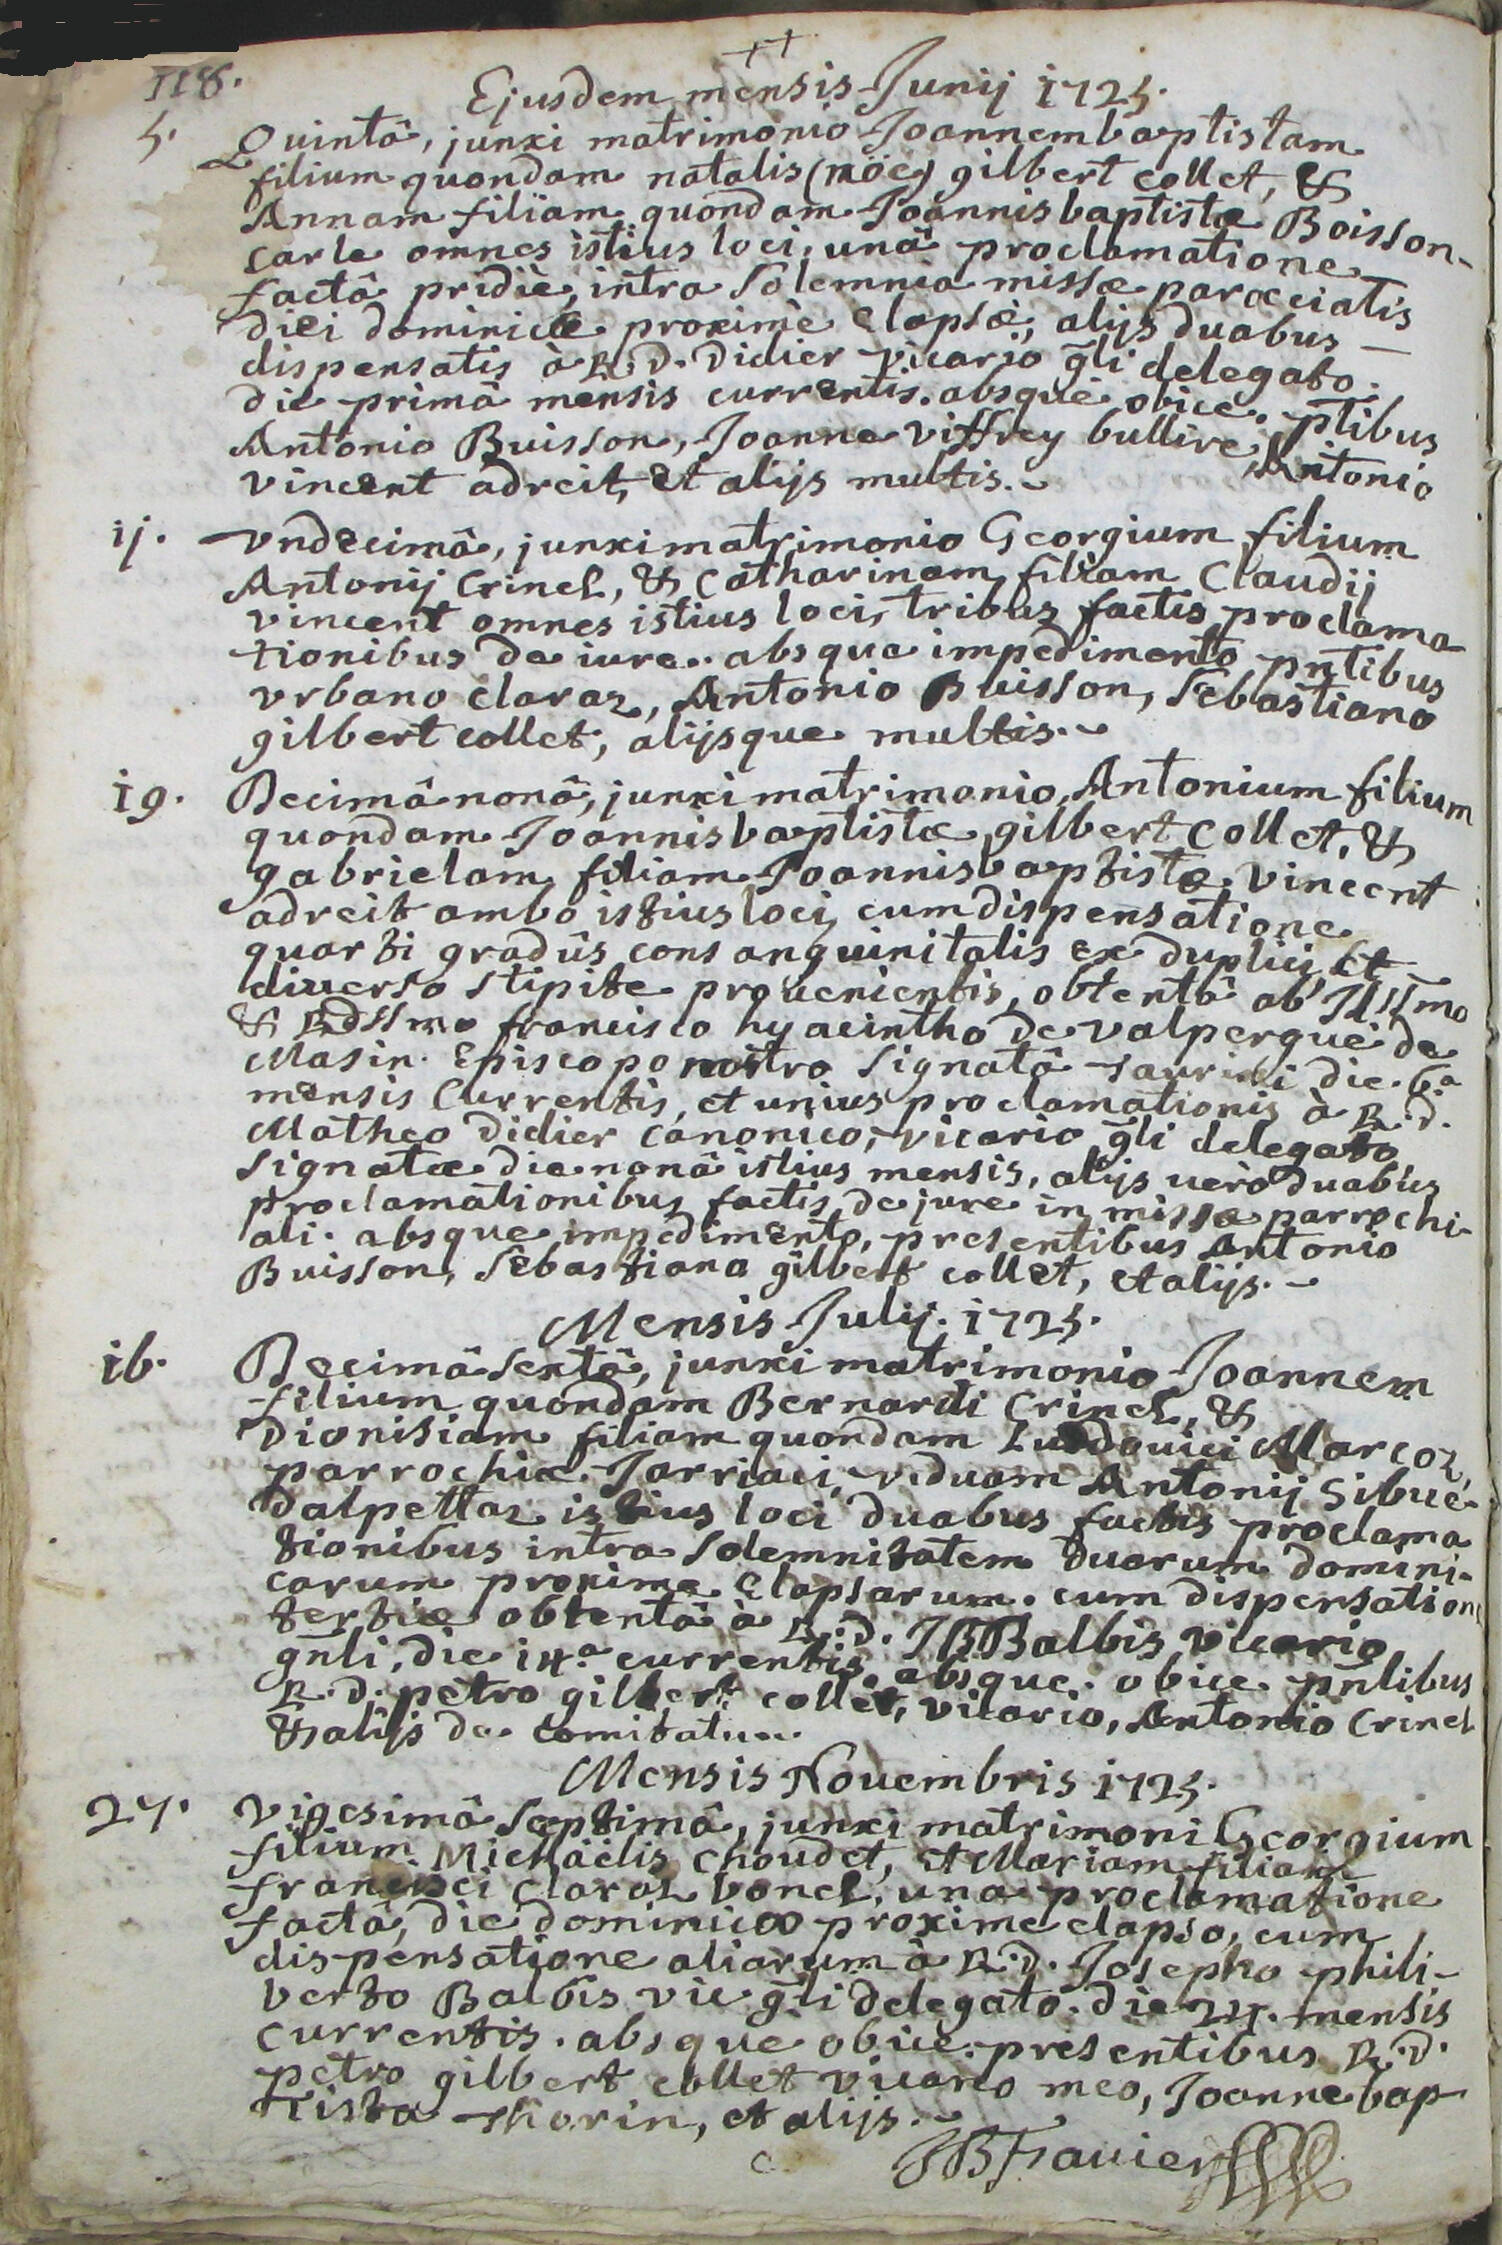 118.
Ejusdem mensis Junij 1725.
5. Quintâ, junxi matrimonio Joannembaptistam
filium quondam natalis (nöe) gilbert collet, &
Annam filiam quondam Joannisbaptistæ Boisson-
carle omnes istius loci, unâ proclamatione
factâ pridiè, intra Solemnia missæ parœcialis
diei dominicæ proximè elapsæ, alijs duabus
dispensatis à R.D. Didier vicario gñli delegato.
die primâ mensis currentis. absque obice. ptibus
Antonio Buisson, Joanne Viffrey bullire, Antonio
vincent adreit, et alijs multis.
ij. Vndecimâ, junxi matrimonio Georgium filium
Antonij Crinel, & Catharinam filiam Claudij
vincent omnes istius loci, tribus factis proclama
tionibus de iure.. absque impedimento pntibus
vrbano claraz, Antonio Buisson, Sebastiano
gilbert collet, alijsque multis.
19. Decimânonâ, junxi matrimonio Antonium filium
quondam Joannisbaptistæ gilbert collet, &
gabrielam filiam Joannisbaptistæ vincent
adreit ambo istius loci, cum dispensatione
quarti gradûs consanguinitatis ex duplici et
diuerso stipite prouenientis, obtentâ ab Illsmo
& Rdssmo francisco hyacintho de valpergue de
Masin. Episcopo nostro Signatâ taurini die. 6.a
mensis Currentis, et unius proclamationis à R.D.
Matheo Didier canonico, vicario gñli delegato
Signatæ die nonâ istius mensis, alijs uèro duabus
proclamationibus factis de jure in missa parrochi-
ali. absque impedimento, presentibus Antonio
Buisson, Sebastiano gilbert collet, et alijs.
Mensis Julij. 1725.
16. Decimâ Sextâ, junxi matrimonio Joannem
filium quondam Bernardi Crinel, &
Dionisiam filiam quondam Ludouici Marcoz,
parrochiæ Jarriaci, viduam Antonij Sibué
dalpettaz istius loci duabus factis proclama
tionibus intra Solemnitatem duarum domini-
carum proximè elapsarum. cum dispensatione
tertiæ obtentâ à R.D. JB Balbis vicario
gñli, die 14.a currentis. absque. obice. pñtibus
R.D. petro gilbert collet, vicario, Antonio Crinel
& alijs de comitatu..
Mensis Nouembris 1725.
27. Vigesimâ Septimâ, junxi matrimoni Georgium
filium Michaëlis choudet, et Mariam filiam
francisci claraz bonel, una proclamatione
factâ, die dominico proxime elapso, cum
dispensatione aliarum à R.D. Josepho phili-
berto Balbis vic gñli delegato. die 24. mensis
currentis. absque obice. presentibus R.D.
petro gilbert collet vicario meo, Joanne bap
tista thorin, et alijs.
JB Frauier